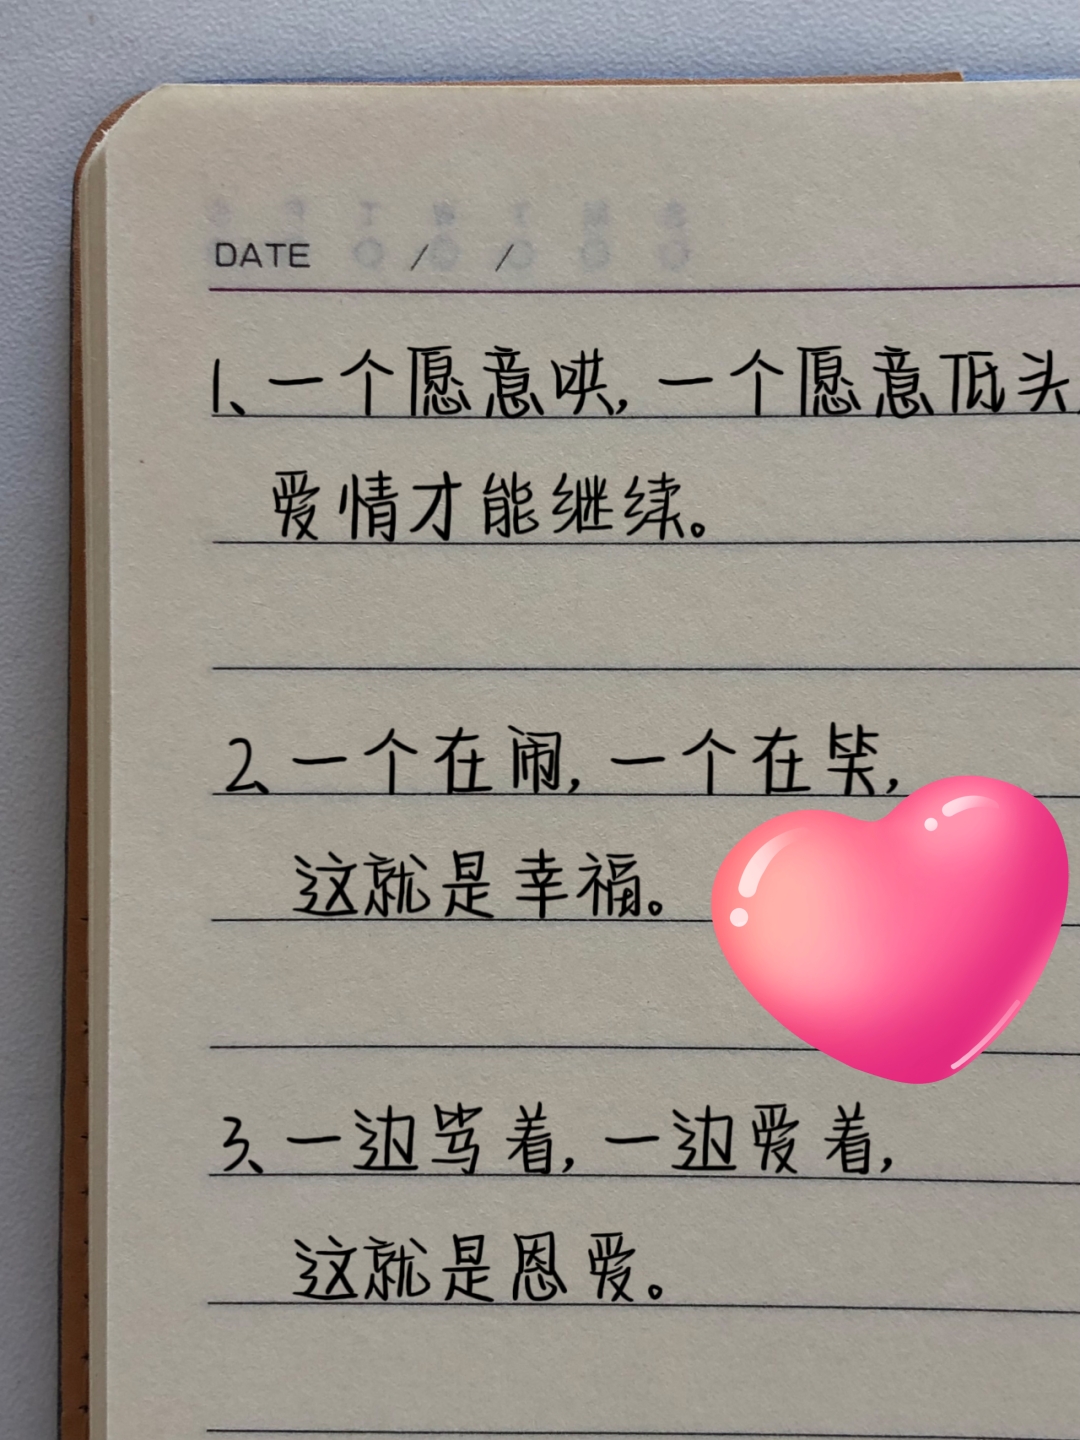 DATE / /
1、一个愿意哄，一个愿意低头，
爱情才能继续。
2、一个在闹，一个在笑，
这就是幸福。
3、一边骂着，一边爱着，
这就是恩爱。